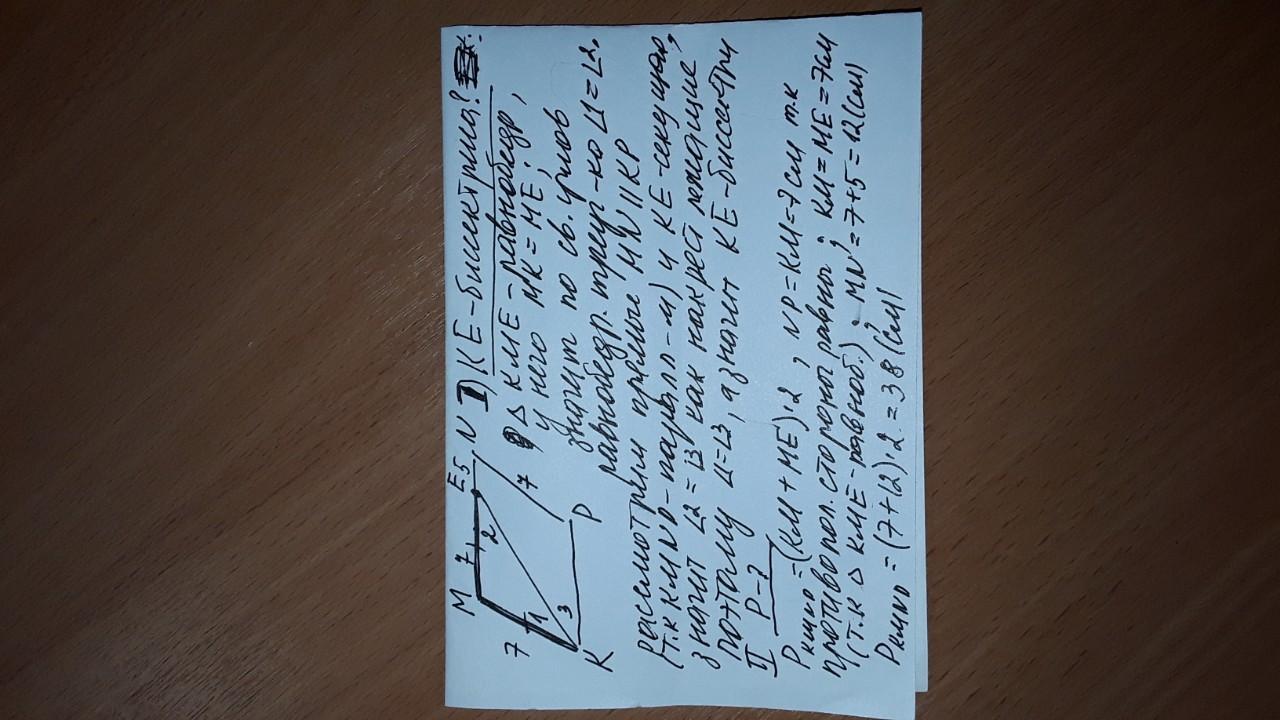 M 7 E 5 N
7 1 2 3 7
K P
I) KE-биссектриса?
△ KME - равнобедр,
у него MK = ME,
значит по св. углов
равнобедр. треуг-ка ∠1=∠2.
рассмотрим прямые MN || KP
(т.к KMNP - паралл-м) и KE-секущая,
значит ∠2 = ∠3 как накрест лежащие,
поэтому ∠1=∠3, а значит KE-биссектри
II P-?
P KMNP = (KM + ME)·2, NP = KM = 7 см т.к
противопол. стороны равны; KM = ME = 7 см
(т.к △ KME - равноб.); MN = 7+5 = 12 (см)
P KMNP = (7+12)·2 = 38 (см)